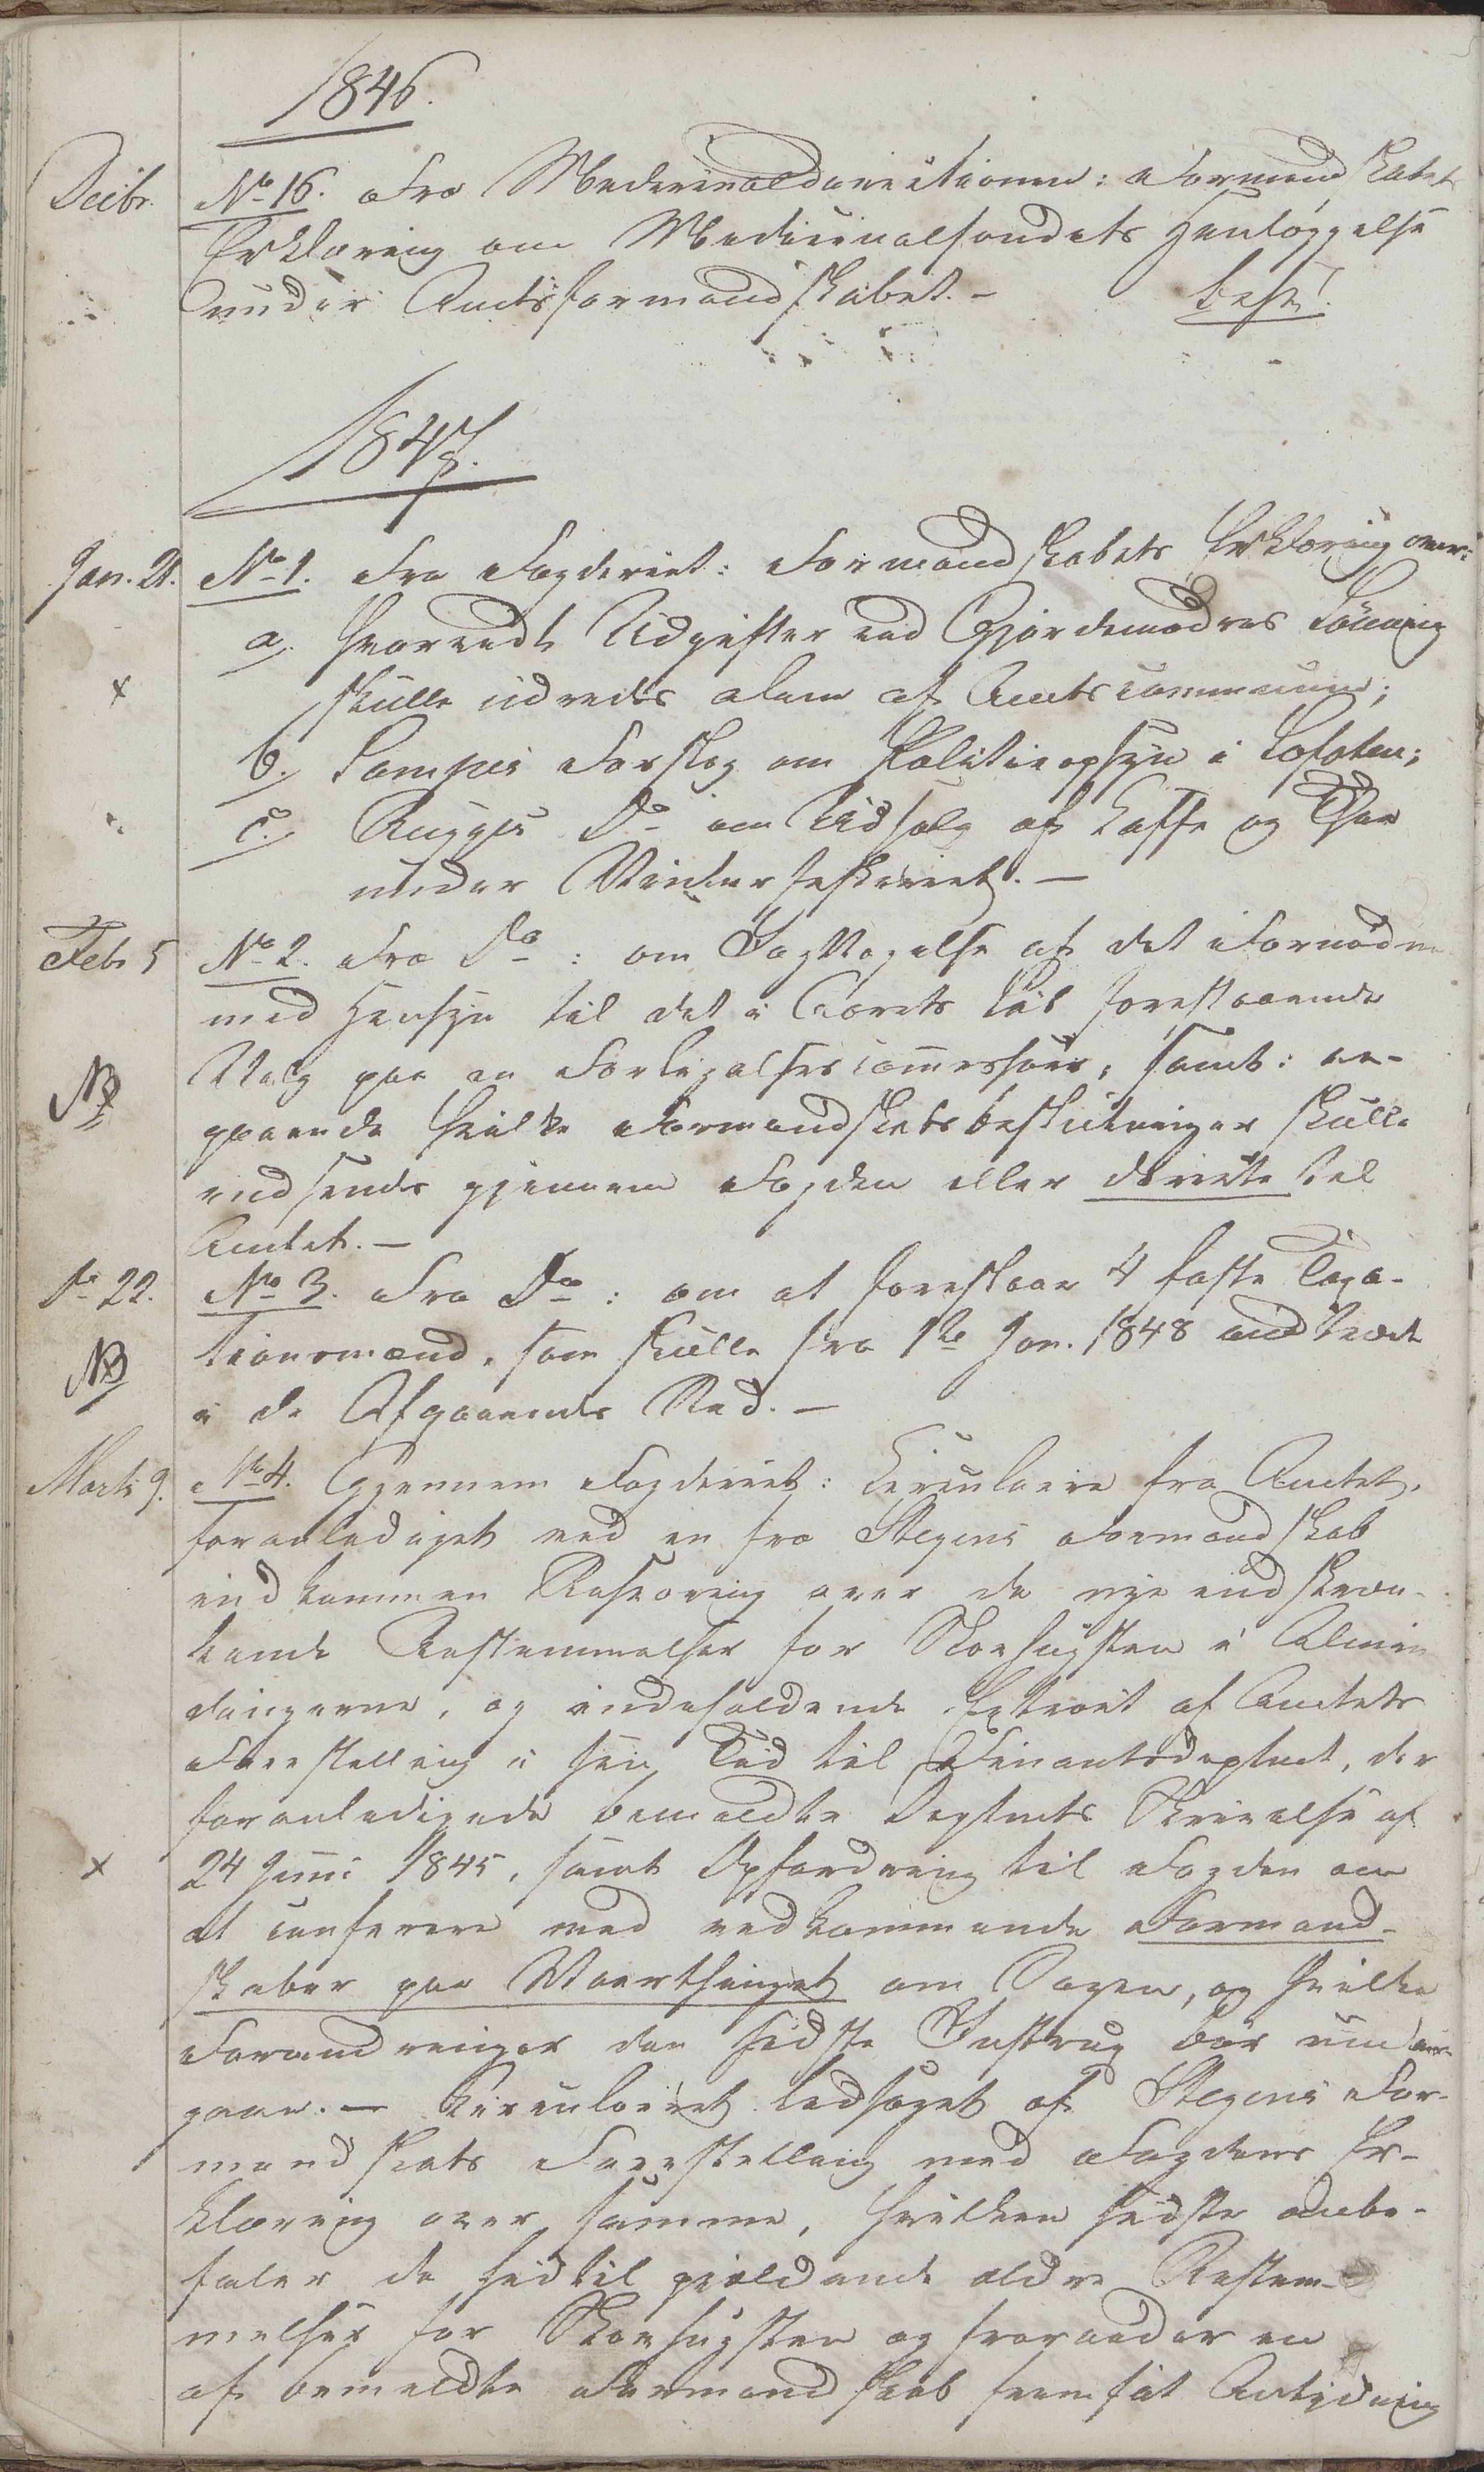 1846.
Decbr. No 16. Fra Medicinaldirectionen: Formandskabets
Erklæring om Medicinalfondets Henlæggelse
under Amtsformandskabet. – besv.
1847.
Jan. 21. No 1. Fra Fogderiet: Formandskabets Erklæring over:
a. hvorvidt Udgifter ved Gjordemødres Lønning
x skulle udredes alene af Amtscommunen;
b. Forslag om Politieopsyn i Lofoten;
c. Do om Udsalg af Kaffe og Thee
under Vinterfiskeriet. –
Feb 5 No 2. Fra Do: om Iagttagelse af det Fornødne
med Hensyn til det i Aarets Løb forestaaende
NB Valg paa en Forligelsescommissair, samt: an-
gaaende hvilke Formandskabsbeslutninger skulle
indsendes gjennem Fogden eller directe til
Amtet. –
Do 22. No 3. Fra Do: om at foreslaae 4 faste Taxa-
NB tionsmænd, som skulle fra 1ste Jan. 1848 indtræde
i de Afgaaendes Sted. –
Marts 9. No 4. Gjennem Fogderiet: Circulaire fra Amtet,
foranlediget ved en fra Stegens Formandskab
indkommen Besværing over de nye indskræn-
kende Bestemmelser for Skovhugsten i Almin
dingerne, og indeholdende Extract af Amtets
Forestilling i sin Tid til Finantsdeptmt, der
foranledigede bemeldte Deptmts Skrivelse af
x 24 Juni 1845, samt Opfordring til Fogden om
at conferere med vedkommende Formand-
skaber paa Vaarthinget om Sagen, og hvilke
Forandringer den sidste Instrux bør under-
gaae. – Circulairet ledsaget af Stegens For-
mandskabs Forestilling med Fogdens Er-
klæring over samme, hvilken sidste anbe-
faler de hidtil gjældende ældre Bestem-
melser for Skovhugsten og fraraader en
af bemeldte Formandskab fremsat Antydning